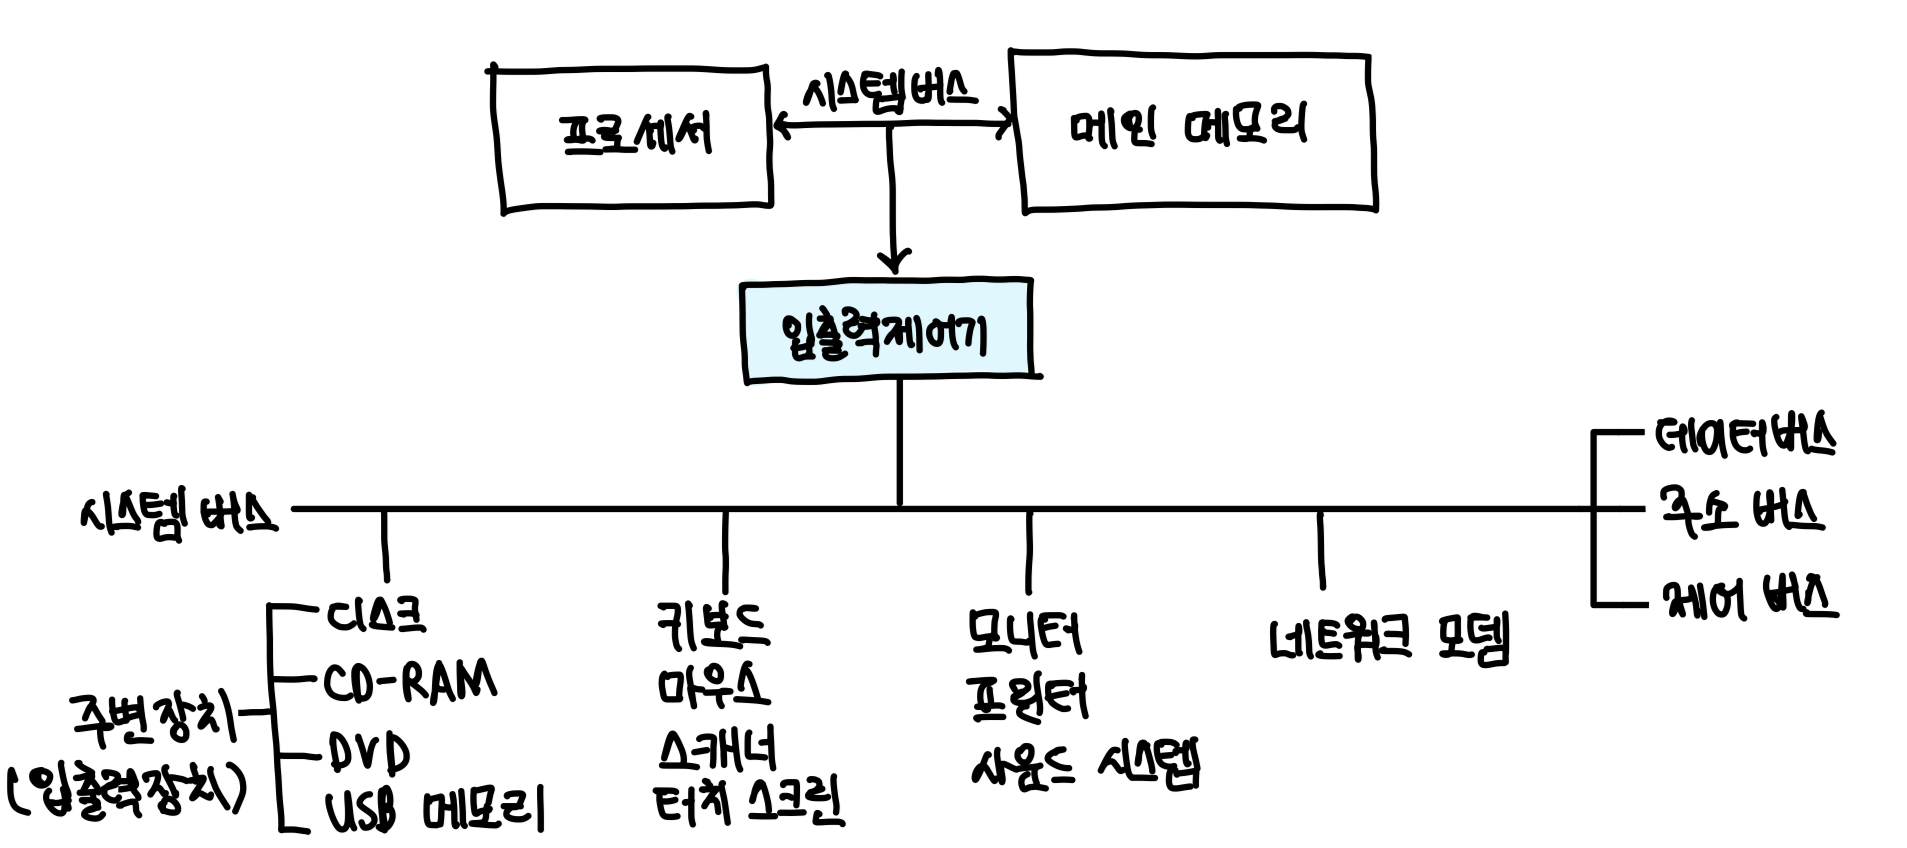 프로세서
시스템버스
메인 메모리
입출력제어기
시스템 버스
데이터버스
주소 버스
제어 버스
주변장치
(입출력장치)
디스크
CD-RAM
DVD
USB 메모리
키보드
마우스
스캐너
터치 스크린
모니터
프린터
사운드 시스템
네트워크 모뎀